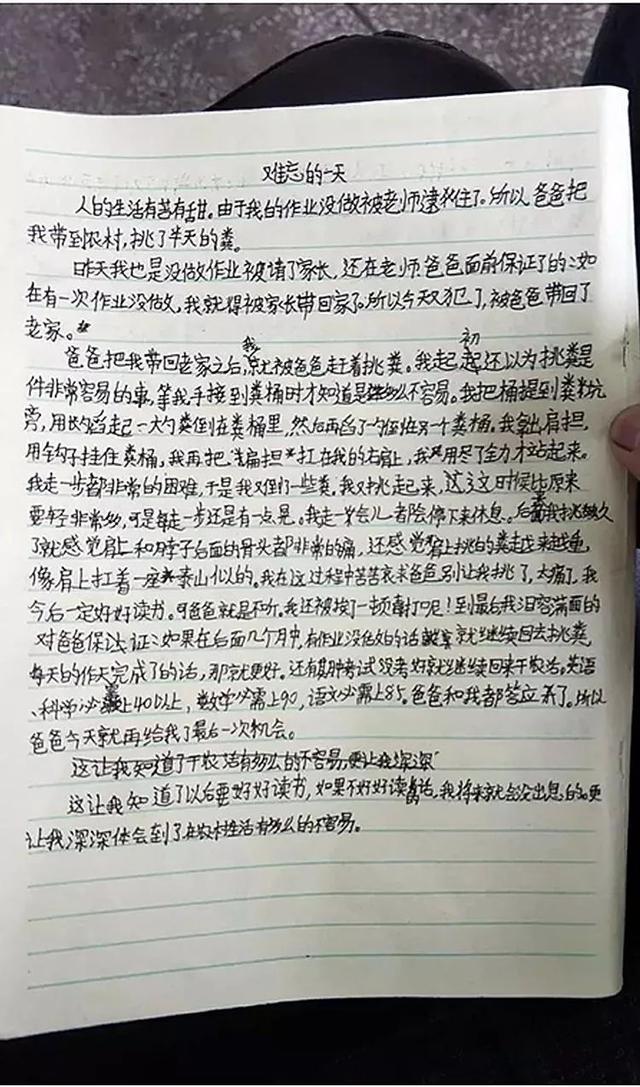 难忘的一天
人的生活有苦有甜。由于我的作业没做被老师逮住了。所以爸爸把
我带到农村,挑了半天的粪。
昨天我也是没做作业被请了家长,还在老师爸爸面前保证了的:如
在有一次作业没做,我就得被家长带回家了。所以今天又犯了,被爸爸带回了
老家。
爸爸把我带回老家之后,我就被爸爸赶着挑粪。我起初还以为挑粪是
件非常容易的事,等我手接到粪桶时才知道是多么不容易。我把桶提到粪坑
旁,用长勺舀起一大勺粪倒在粪桶里,然后再舀了一勺倒在另一个粪桶。我拿出肩担,
用钩子挂住粪桶,我再把扁担扛在我的右肩上,我用尽了全力才站起来。
我走一步都非常的困难,于是我又倒了一些粪。我又挑起来,这时候比原来
要轻非常多,可是每走一步还是有一点晃。我走一会儿都会停下来休息。后来我挑久
了就感觉肩上和脖子后面的骨头都非常的痛,还感觉肩上挑的粪越来越重,
像肩上扛着一座泰山似的。我在这过程中苦苦哀求爸爸别让我挑了,太痛了,我
今后一定好好读书。可爸爸就是不听。我还被挨了一顿毒打了呢!到最后我泪容满面的
对爸爸保证:如果在后面几个月中,有作业没做的话就继续回去挑粪,
每天的作天完成了的话,那就更好。还有期中考试没考好就继续回来干农活。英语
、科学必需上40以上,数学必需上90,语文必需上85。爸爸和我都答应了。所以
爸爸今天就再给我了最后一次机会。
这让我知道了干农活有多么的不容易,更让我深深
这让我知道了以后要好好读书,如果不好好读书的话,我将来就会没出息的。更
让我深深体会到了在农村生活有多么的不容易。